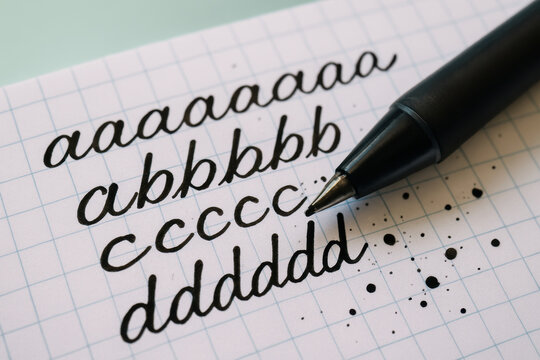 aaaaaaaaa
abbbbb
cccccc
dddddd